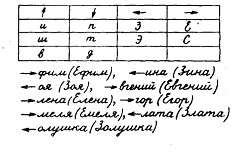 ↑ ↓ ← →
и п З Е
ш т Э С
в д
→фим (Ефим), ←ина (Зина)
←оя (Зоя), →вгений (Евгений)
→лена (Елена), →гор (Егор)
→меля (Емеля), ←лата (Злата)
←олушка (Золушка)